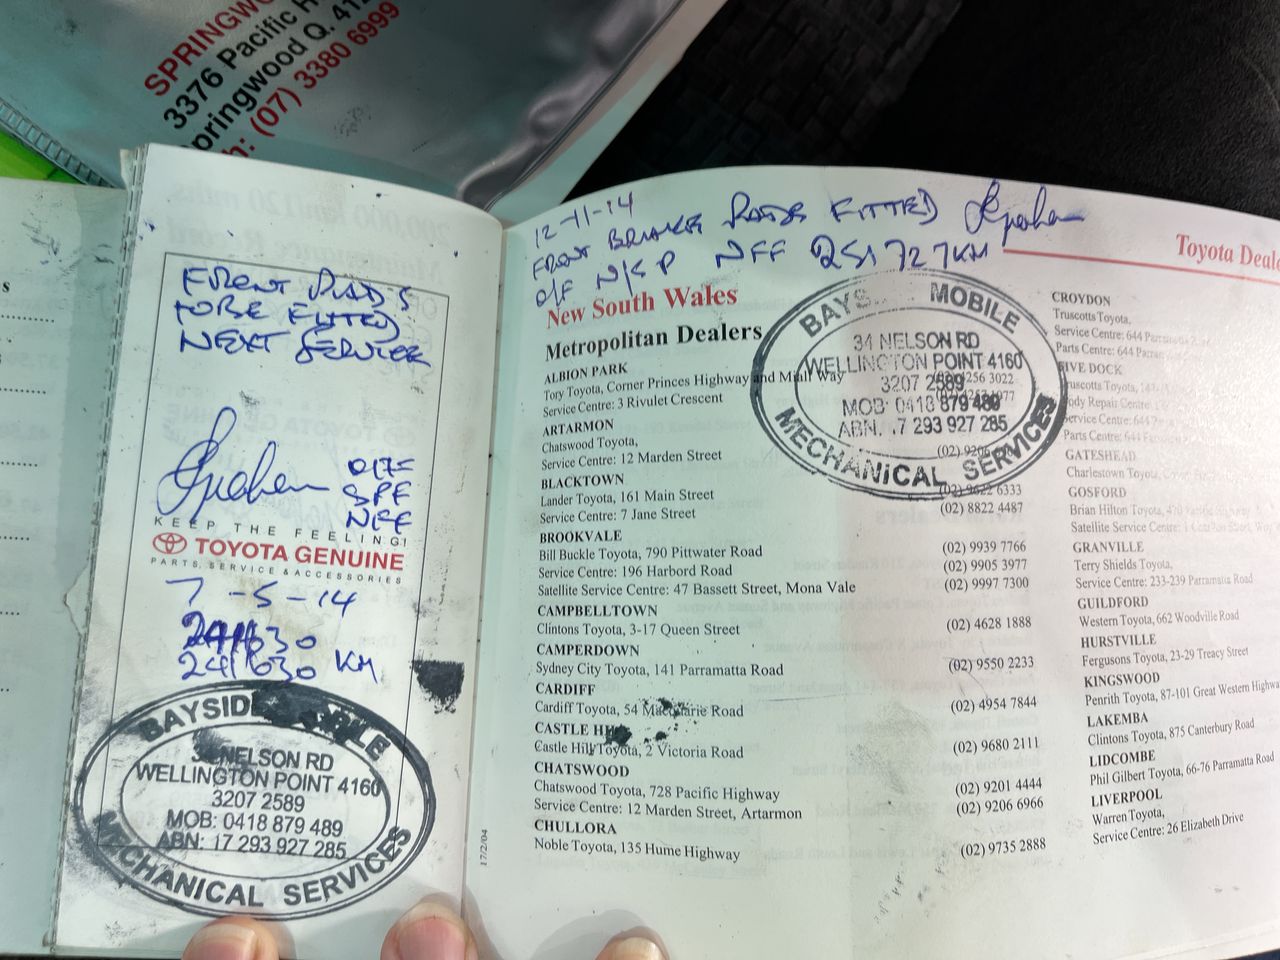 3376 Pacific H
pringwood Q. 41
h: (07) 3380 6999
FRONT PADS
TO BE FITTED
NEXT SERVICE
Graham
O/F
SPF
NFF
KEEP THE FEELING!
TOYOTA GENUINE
PARTS, SERVICE & ACCESSORIES
7-5-14
241630 KM
BAYSIDE MOBILE
34 NELSON RD
WELLINGTON POINT 4160
3207 2589
MOB: 0418 879 489
ABN: 17 293 927 285
MECHANICAL SERVICES
12-11-14
FRONT BRAKE PADS FITTED Graham
O/F N/S P NFF 251727KM
BAYS MOBILE
34 NELSON RD
WELLINGTON POINT 4160
3207 2589
MOB: 0418 879 489
ABN: 17 293 927 285
MECHANICAL SERVICES
Toyota Deal
New South Wales
Metropolitan Dealers
ALBION PARK
Tory Toyota, Corner Princes Highway and Miall Way 4256 3022
Service Centre: 3 Rivulet Crescent
ARTARMON
Chatswood Toyota,
Service Centre: 12 Marden Street
BLACKTOWN
Lander Toyota, 161 Main Street (02) 9622 6333
Service Centre: 7 Jane Street (02) 8822 4487
BROOKVALE
Bill Buckle Toyota, 790 Pittwater Road (02) 9939 7766
Service Centre: 196 Harbord Road (02) 9905 3977
Satellite Service Centre: 47 Bassett Street, Mona Vale (02) 9997 7300
CAMPBELLTOWN
Clintons Toyota, 3-17 Queen Street (02) 4628 1888
CAMPERDOWN
Sydney City Toyota, 141 Parramatta Road (02) 9550 2233
CARDIFF
Cardiff Toyota, 54 Macquarie Road (02) 4954 7844
CASTLE HILL
Castle Hill Toyota, 2 Victoria Road (02) 9680 2111
CHATSWOOD
Chatswood Toyota, 728 Pacific Highway (02) 9201 4444
Service Centre: 12 Marden Street, Artarmon (02) 9206 6966
CHULLORA
Noble Toyota, 135 Hume Highway (02) 9735 2888
17/2/04
CROYDON
Truscotts Toyota,
Service Centre: 644
Parts Centre: 644
FIVE DOCK
Truscotts Toyota,
Body Repair Centre:
Service Centre: 644
Parts Centre: 644
GATESHEAD
Charlestown Toyota,
GOSFORD
Brian Hilton Toyota,
Satellite Service Centre:
GRANVILLE
Terry Shields Toyota,
Service Centre: 233-239 Parramatta Road
GUILDFORD
Western Toyota, 662 Woodville Road
HURSTVILLE
Fergusons Toyota, 23-29 Treacy Street
KINGSWOOD
Penrith Toyota, 87-101 Great Western Highwa
LAKEMBA
Clintons Toyota, 875 Canterbury Road
LIDCOMBE
Phil Gilbert Toyota, 66-76 Parramatta Road
LIVERPOOL
Warren Toyota,
Service Centre: 26 Elizabeth Drive